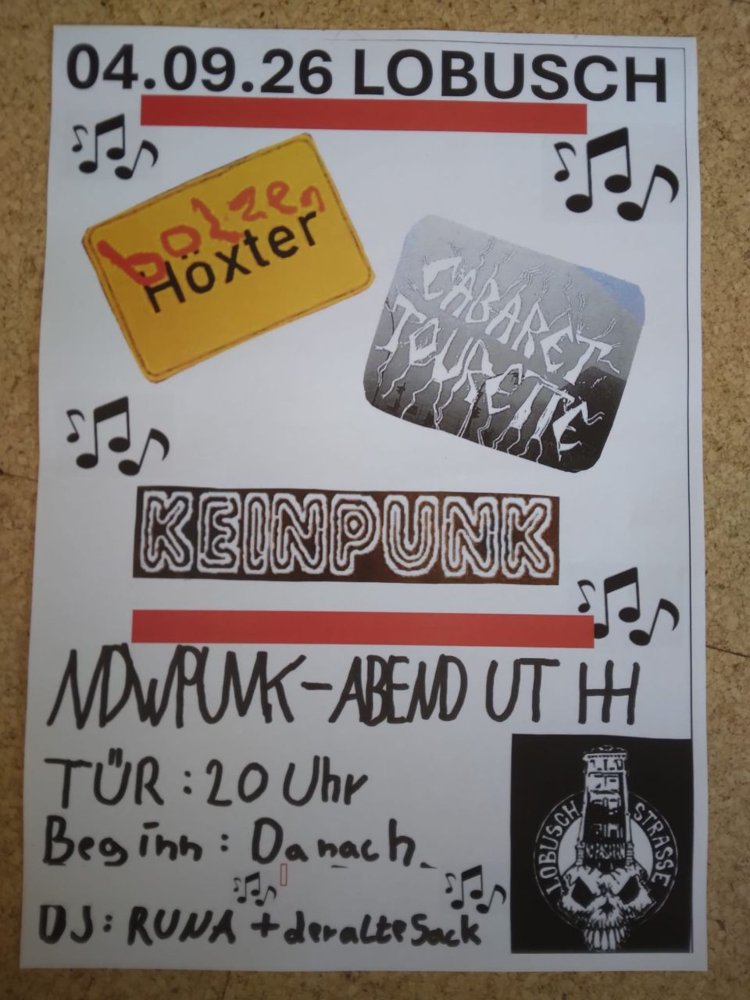 04.09.26 LOBUSCH
bolzen
Höxter
CABARET
TOURETTE
KEINPUNK
NDWPUNK-ABEND UT HH
TÜR: 20 Uhr
Beginn: Danach
DJ: RUNA + der alte Sack
LOBUSCH STRASSE